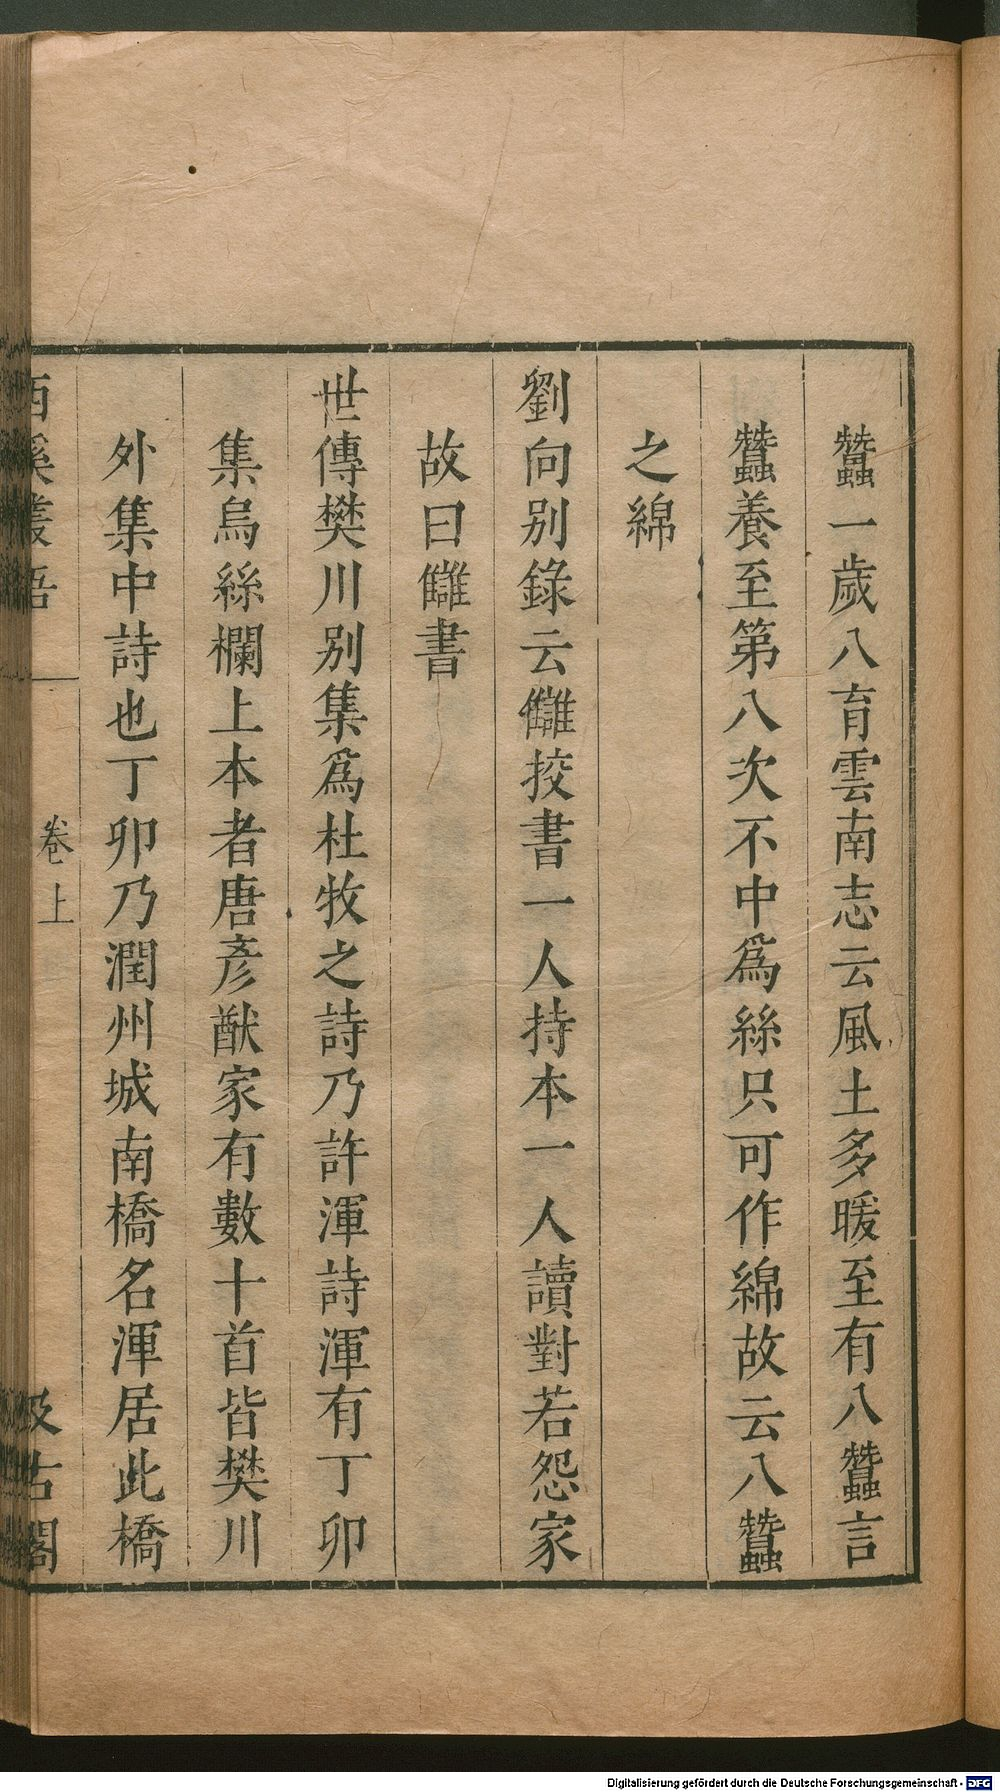 蠶一歲八育雲南志云風土多暖至有八蠶言
蠶養至第八次不中爲絲只可作綿故云八蠶
之綿
劉向別錄云讎挍書一人持本一人讀對若怨家
故曰讎書
世傳樊川别集爲杜牧之詩乃許渾詩渾有丁卯
集烏絲欄上本者唐彥猷家有數十首皆樊川
外集中詩也丁卯乃潤州城南橋名渾居此橋
西溪叢語
卷上
汲古閣
Digitalisierung gefördert durch die Deutsche Forschungsgemeinschaft - DFG